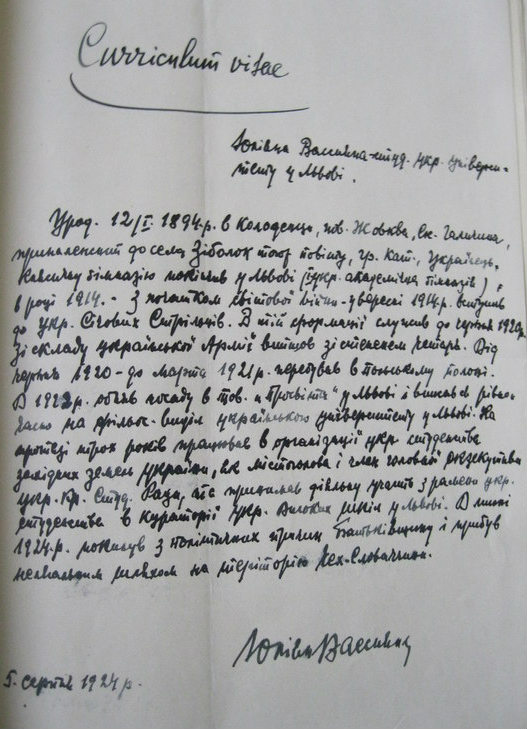 Curriculum vitae
Юліяна Василина-студ. укр. універси-
тету у Львові.
Урод. 12/I. 1894.р. в Колоденцю, пов. Жовква, Сх. Галичина,
приналежний до села Зіболок тогож повіту, гр. кат., українець.
Клясичну гімназію покінчив у Львові (укр. академічна гімназія),
в році 1914. - З початком світової війни - у вересні 1914р. вступив
до Укр. Січових Стрільців. В тій формації служив до 1920р.
Зі складу української Армії вийшов зі степенем четаря. Від
червня 1920 - до марта 1921р. перебував в польському полоні.
В 192 р. обняв посаду в тов. „Просвіта" у Львові і вписався рівно-
часно на фільос. виділ українського університету у Львові. На
протязі трох років працював в організації укр. студенства
західних земель України, як містоголова і член головної екзекутиви
укр. Кр. Студ. Ради, та приймав діяльну участь з рамени укр.
студенства в кураторії укр. високих шкіл у Львові. В липні
1924.р. покинув з політичних причин Батьківщину і прибув
нелегальним шляхом на територію Чех-Словаччини.
5. серпня 1924 р.